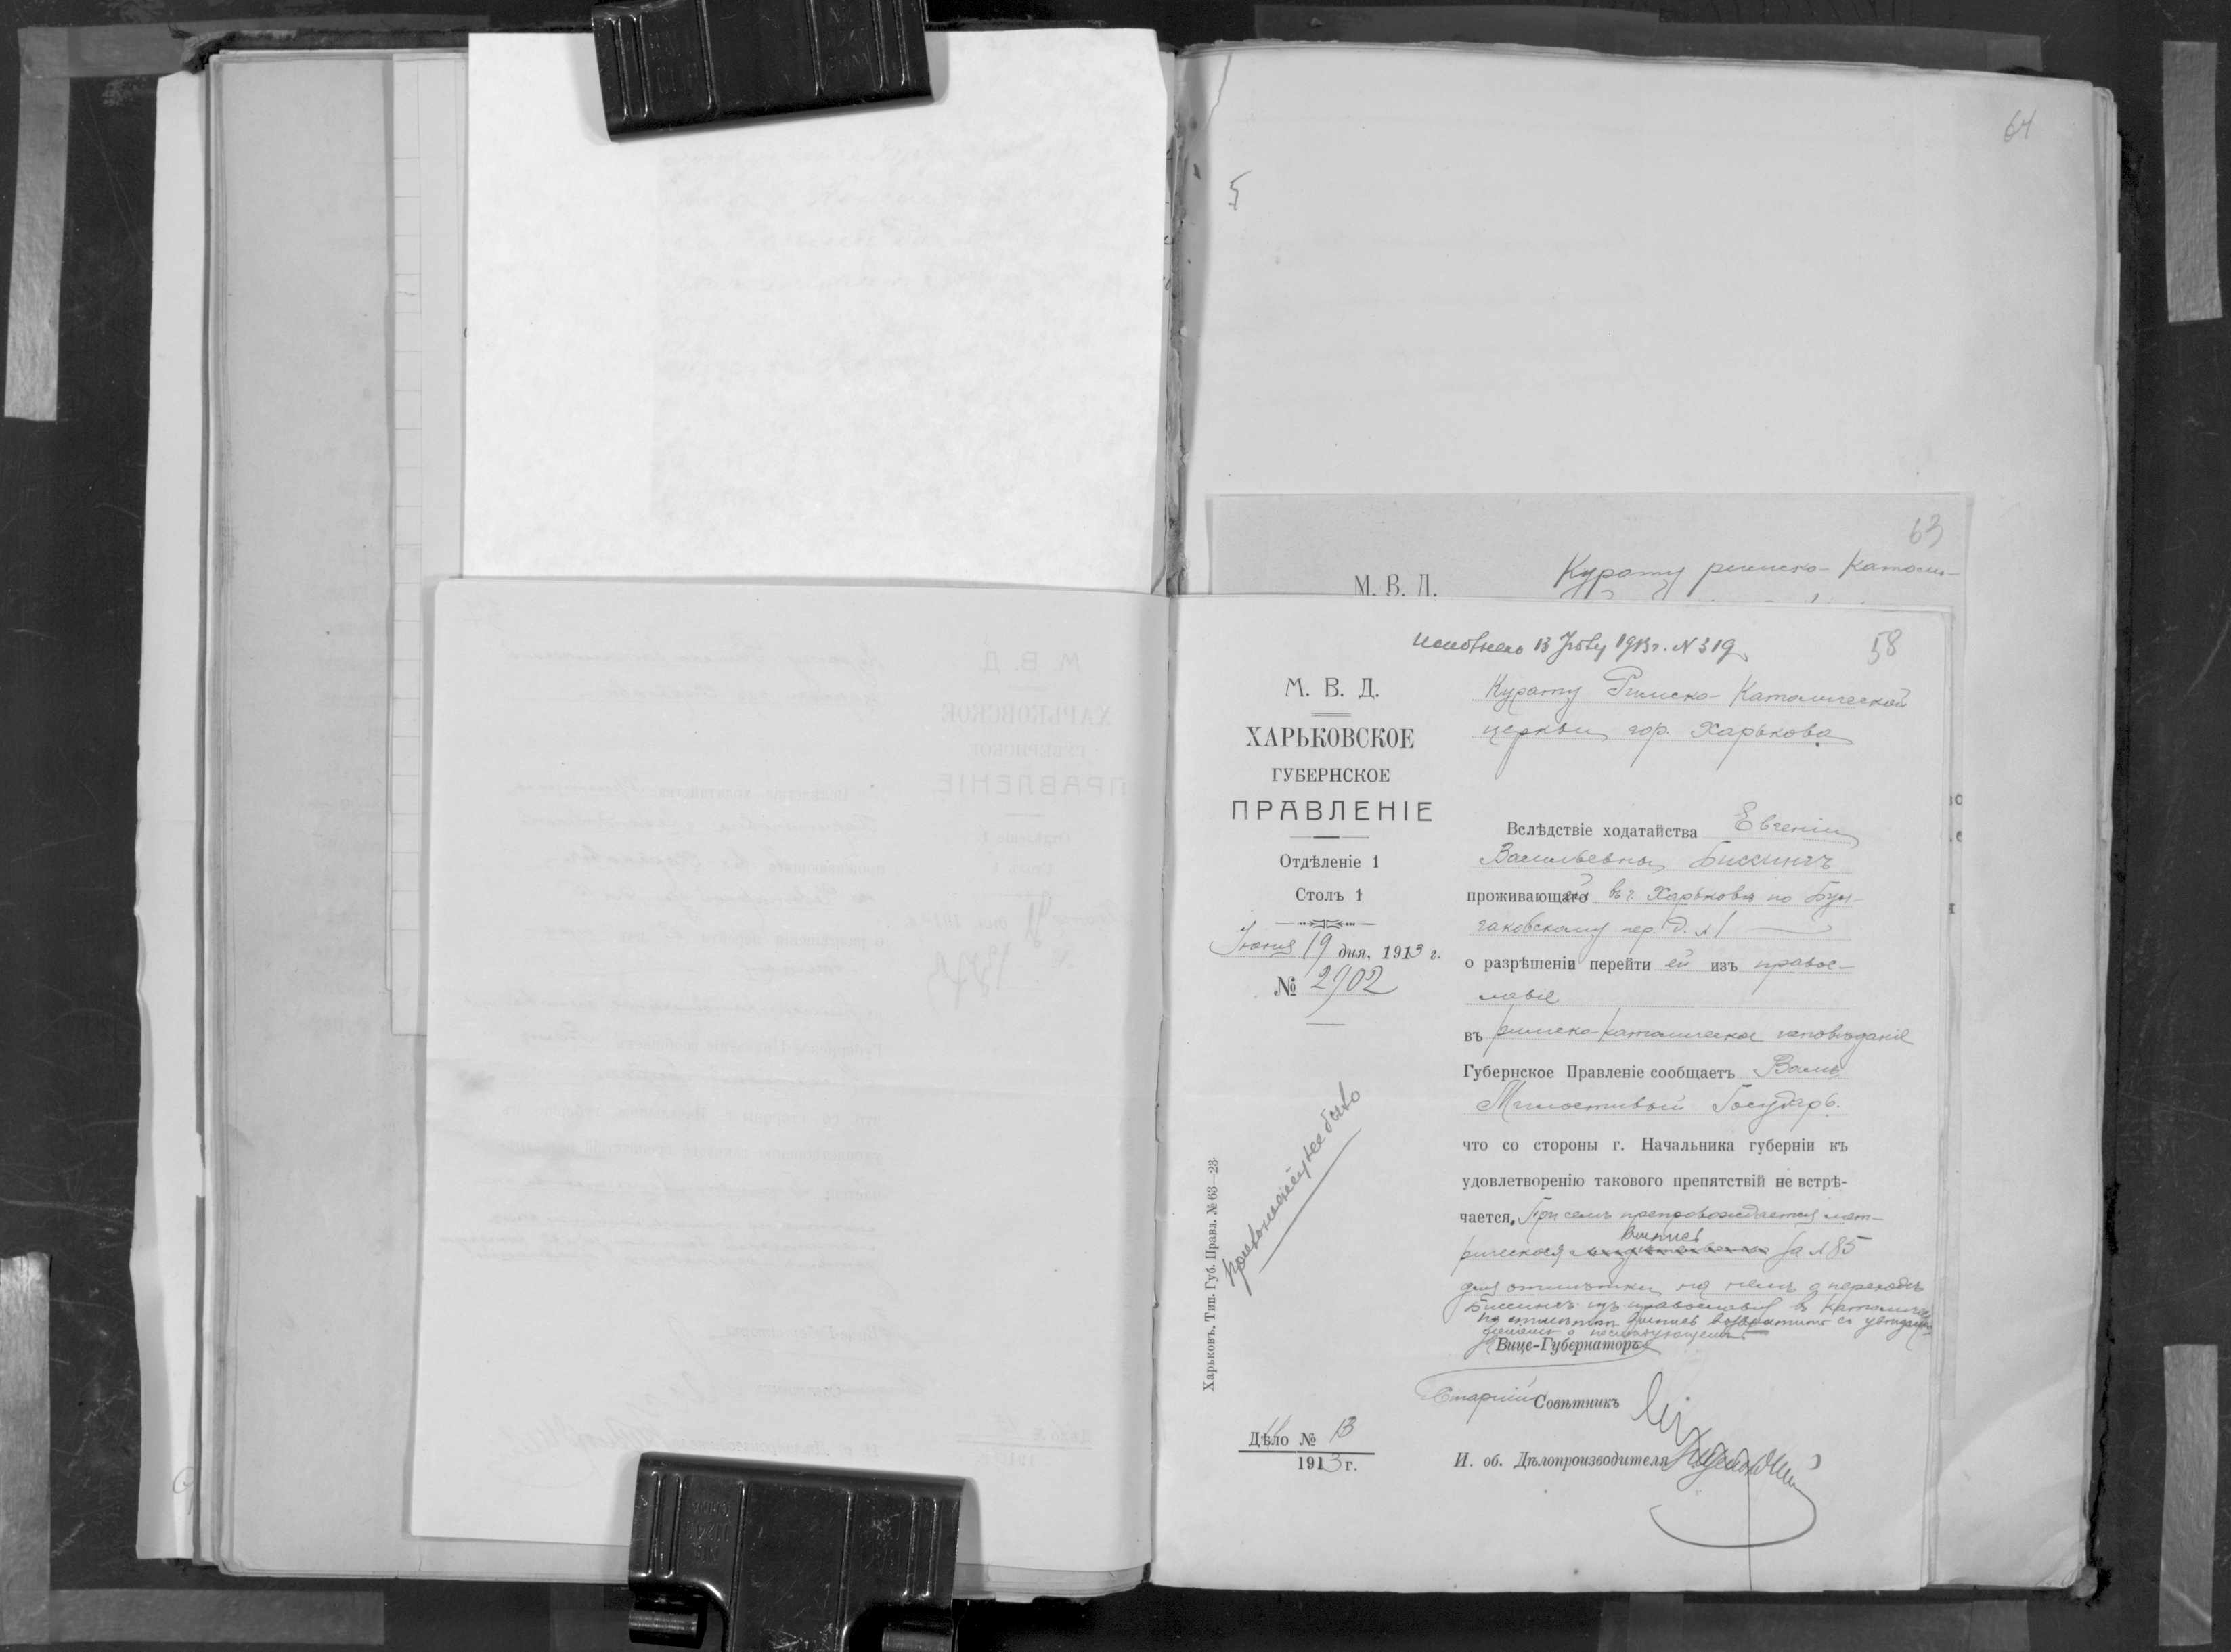 64
5
63
М. В. Д.
Курату римско-католи-
Исполнено 13 1913 г. № 319
58
М. В. Д.
ХАРЬКОВСКОЕ
ГУБЕРНСКОЕ
ПРАВЛЕНІЕ
Отдѣленіе 1
Столъ 1
Іюня 19 дня, 1913 г.
№ 2902
Курату Римско-Католической
церкви гор. Харькова
Вслѣдствіе ходатайства Евгеніи
Васильевны Биссингъ
проживающей въ г. Харьковѣ по
пер. д. № 1
о разрѣшеніи перейти ей изъ право-
славія
въ римско-католическое исповѣданіе
Губернское Правленіе сообщаетъ Вамъ
Милостивый Государь.
что со стороны г. Начальника губерніи къ
удовлетворенію такового препятствій не встрѣ-
чается. При семъ препровождается мет-
рическая выпись за № 85
для отмѣтки на немъ о переходѣ
Биссингъ изъ православія въ
Вице-Губернаторъ
Старшій Совѣтникъ
И. об. Дѣлопроизводителя
Дѣло № 13
1913 г.
Харьковъ. Тип. Губ. Правл. № 63—23